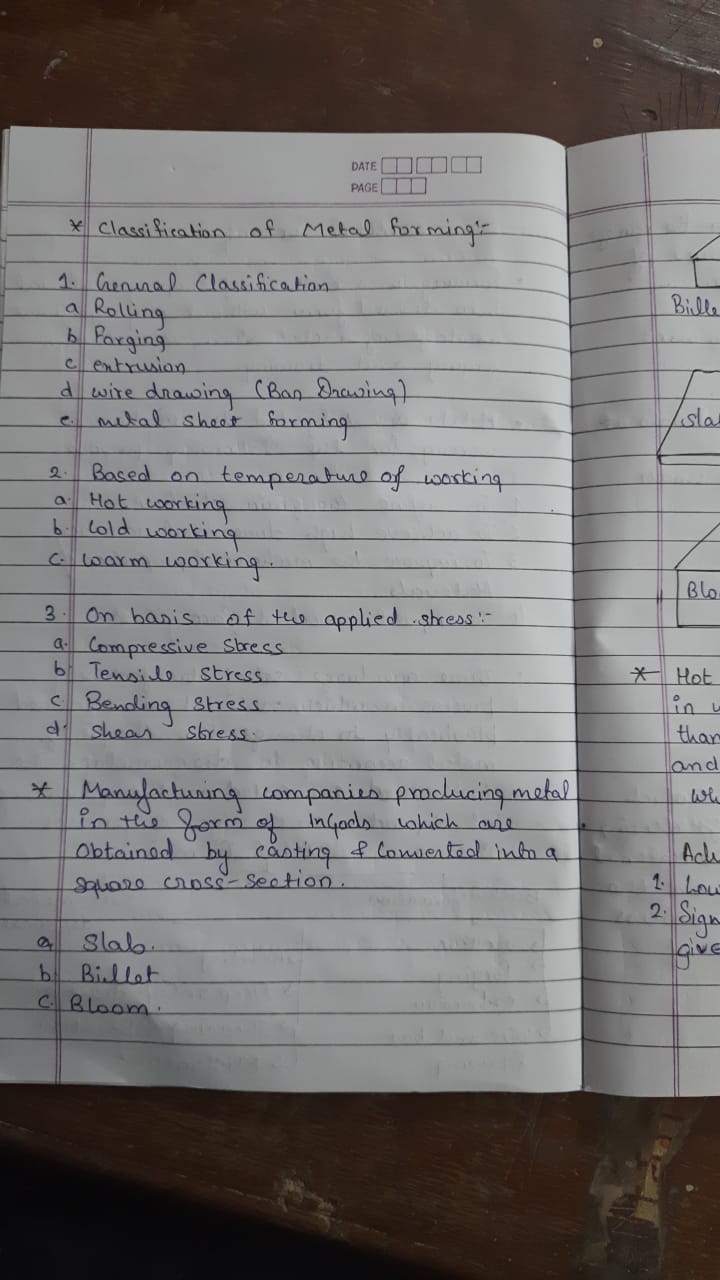 DATE
PAGE
* Classification of Metal forming:-
1. General Classification
a Rolling
b Forging
c extrusion
d wire drawing (Bar Drawing)
e. metal sheet forming
2. Based on temperature of working
a. Hot working
b. Cold working
c. warm working.
3. On basis of the applied stress:-
a. Compressive Stress
b Tensile stress
c. Bending stress
d. Shear stress.
* Manufacturing companies producing metal
in the form of InGods which are
obtained by casting & Converted into a
square cross-section.
a Slab.
b Billet
c. Bloom.
Bille
sla
Blo
* Hot
in
than
and
1.
2. Sign
give